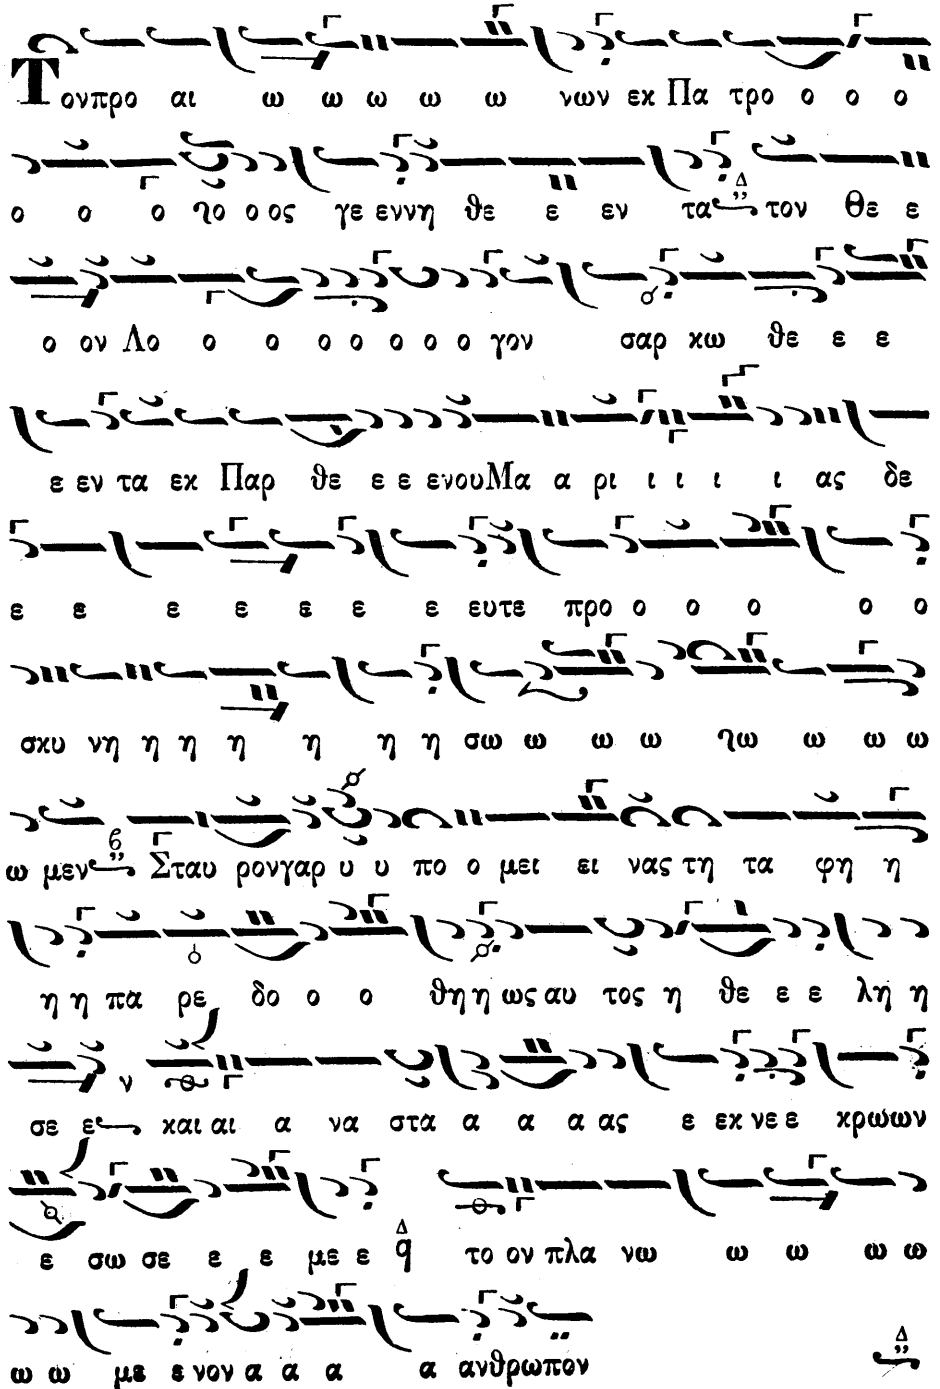 Τονπρο αι ω ω ω ω ω νων εκ Πα τρο ο ο ο
ο ο ο ηο ο ος γε εννη θε ε εν τα τον Θε ε
ο ον Λο ο ο ο ο ο ο ο γον σαρ κω θε ε ε
ε εν τα εκ Παρ θε ε ε ενουΜα α ρι ι ι ι ι ας δε
ε ε ε ε ε ε ε ευτε προ ο ο ο ο ο
σκυ νη η η η η η η σω ω ω ω ηω ω ω ω
ω μεν Σταυ ρονγαρ υ υ πο ο μει ει νας τη τα φη η
η η πα ρε δο ο ο θη η ως αυ τος η θε ε ε λη η
σε ε ν και αι α να στα α α α ας ε εκ νε ε κρωων
ε σω σε ε ε με ε Δ q το ον πλα νω ω ω ω ω
ω ω με ε νον α α α α ανθρωπον
Δ